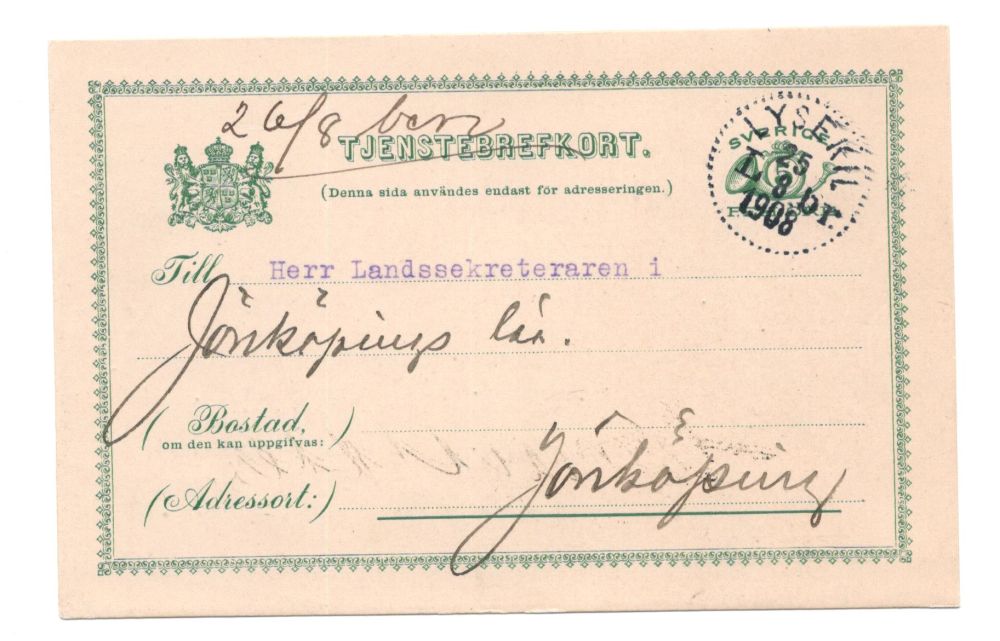 26/8 
TJENSTEBREFKORT.
(Denna sida användes endast för adresseringen.)
SVERIGE
LYSEKIL
25
8
1908
LBR
Till Herr Landssekreteraren i
Jönköpings län.
(Bostad,
om den kan uppgifvas:)
Jönköping
(Adressort:)